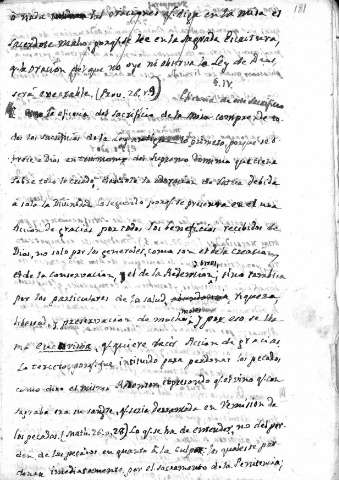 181
o nada las oraciones q dize en la misa el
sacerdote malo, porq se lee en la sagrada Escritura,
q la oracion del que no oye ni observa la Ley de Dios,
será execrable. (Prov. 28. v9)
§. IV.
Eficacia de este sacrificio
la eficacia del sacrificio de la Misa comprende to
dos los sacrificios de la Ley lo primero porque se o
frece a Dios en testimonio del supremo dominio que tiene
sobre todo lo criado, mediante la adoracion de latria debida
á solo la Divinidad. Lo segundo porq se presenta en el una
accion de gracias por todos los beneficios recibidos de
Dios, no solo por los generales, como son el de la creacion,
el de la conservacion, y el de la Redencion, sino tambien
por los particulares de la salud, riqueza
libertad, y preservacion de muchos males, y por eso se lla
ma Eucaristia, q quiere decir Accion de gracias
Lo tercero, porq fue instituido para perdonar los pecados,
como dixo el mismo Redentor expresando q el vino q con
sagraba era su sangre, q seria derramada en remision de
los pecados. (Math. 26. v. 28) Lo q se ha de entender, no del per
don de los pecados en quanto á la culpa, los quales se per
donan inmediatamente, por el sacramento de la Penitencia;